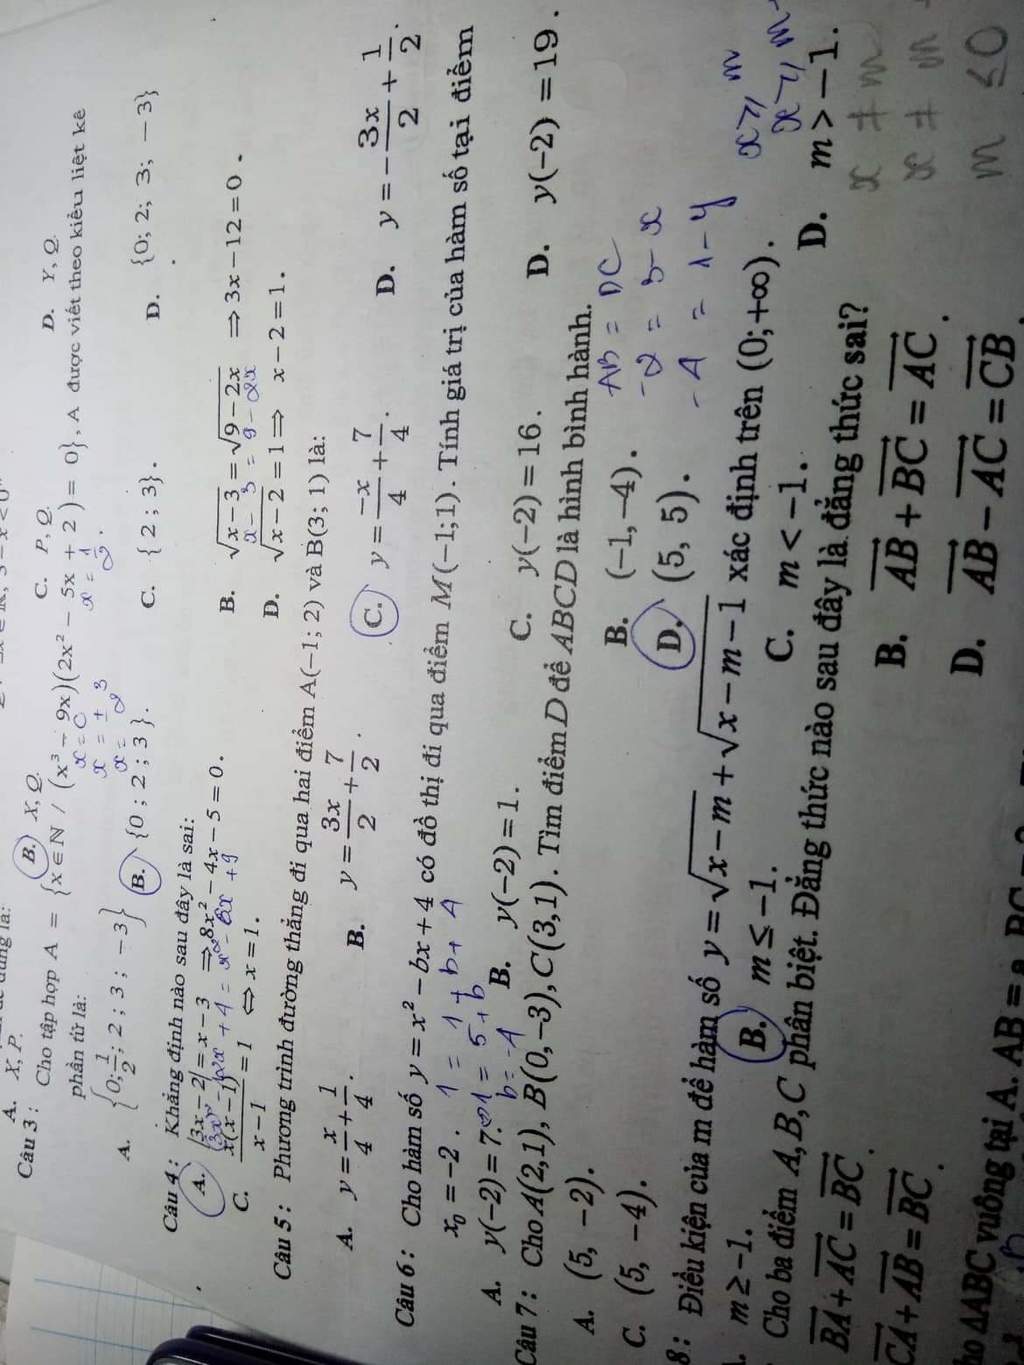 A. X, P.
B. X, Q.
C. P, Q.
D. Y, Q.
Câu 3 : Cho tập hợp A = {x ∈ ℕ / (x³ − 9x)(2x² − 5x + 2) = 0}, A được viết theo kiểu liệt kê
phần tử là:
x = 0
x = ± 3
x = 2
x = 1/2
A. {0; 1/2; 2; 3; −3}
B. {0; 2; 3}.
C. {2; 3}.
D. {0; 2; 3; −3}
Câu 4 : Khẳng định nào sau đây là sai:
A. |3x − 2| = x − 3 ⇒ 8x² − 4x − 5 = 0.
B. √(x − 3) = √(9 − 2x) ⇒ 3x − 12 = 0.
x − 3 = 9 − 2x
C. x(x − 1)/(x − 1) = 1 ⇔ x = 1.
D. √(x − 2) = 1 ⇒ x − 2 = 1.
Câu 5 : Phương trình đường thẳng đi qua hai điểm A(−1; 2) và B(3; 1) là:
A. y = x/4 + 1/4.
B. y = 3x/2 + 7/2.
C. y = −x/4 + 7/4.
D. y = −3x/2 + 1/2.
Câu 6 : Cho hàm số y = x² − bx + 4 có đồ thị đi qua điểm M(−1;1). Tính giá trị của hàm số tại điểm
x₀ = −2.
1 = 1 + b + 4
A. y(−2) = 7.
1 = 5 + b
b = −4
B. y(−2) = 1.
C. y(−2) = 16.
D. y(−2) = 19.
Câu 7 : Cho A(2,1), B(0,−3), C(3,1). Tìm điểm D để ABCD là hình bình hành.
A. (5, −2).
B. (−1, −4).
C. (5, −4).
D. (5, 5).
AB = DC
−2 = 3 − x
−4 = 1 − y
8 : Điều kiện của m để hàm số y = √(x − m) + √(x − m − 1) xác định trên (0; +∞).
x ≥ m
m ≥ −1.
B. m ≤ −1.
C. m < −1.
D. m > −1.
x ≠ m
m ≤ 0
Cho ba điểm A, B, C phân biệt. Đẳng thức nào sau đây là đẳng thức sai?
BA + AC = BC.
B. AB + BC = AC.
CA + AB = BC.
D. AB − AC = CB.
ΔABC vuông tại A.